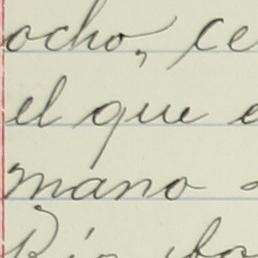 ocho, ce
el que e
mano
Río